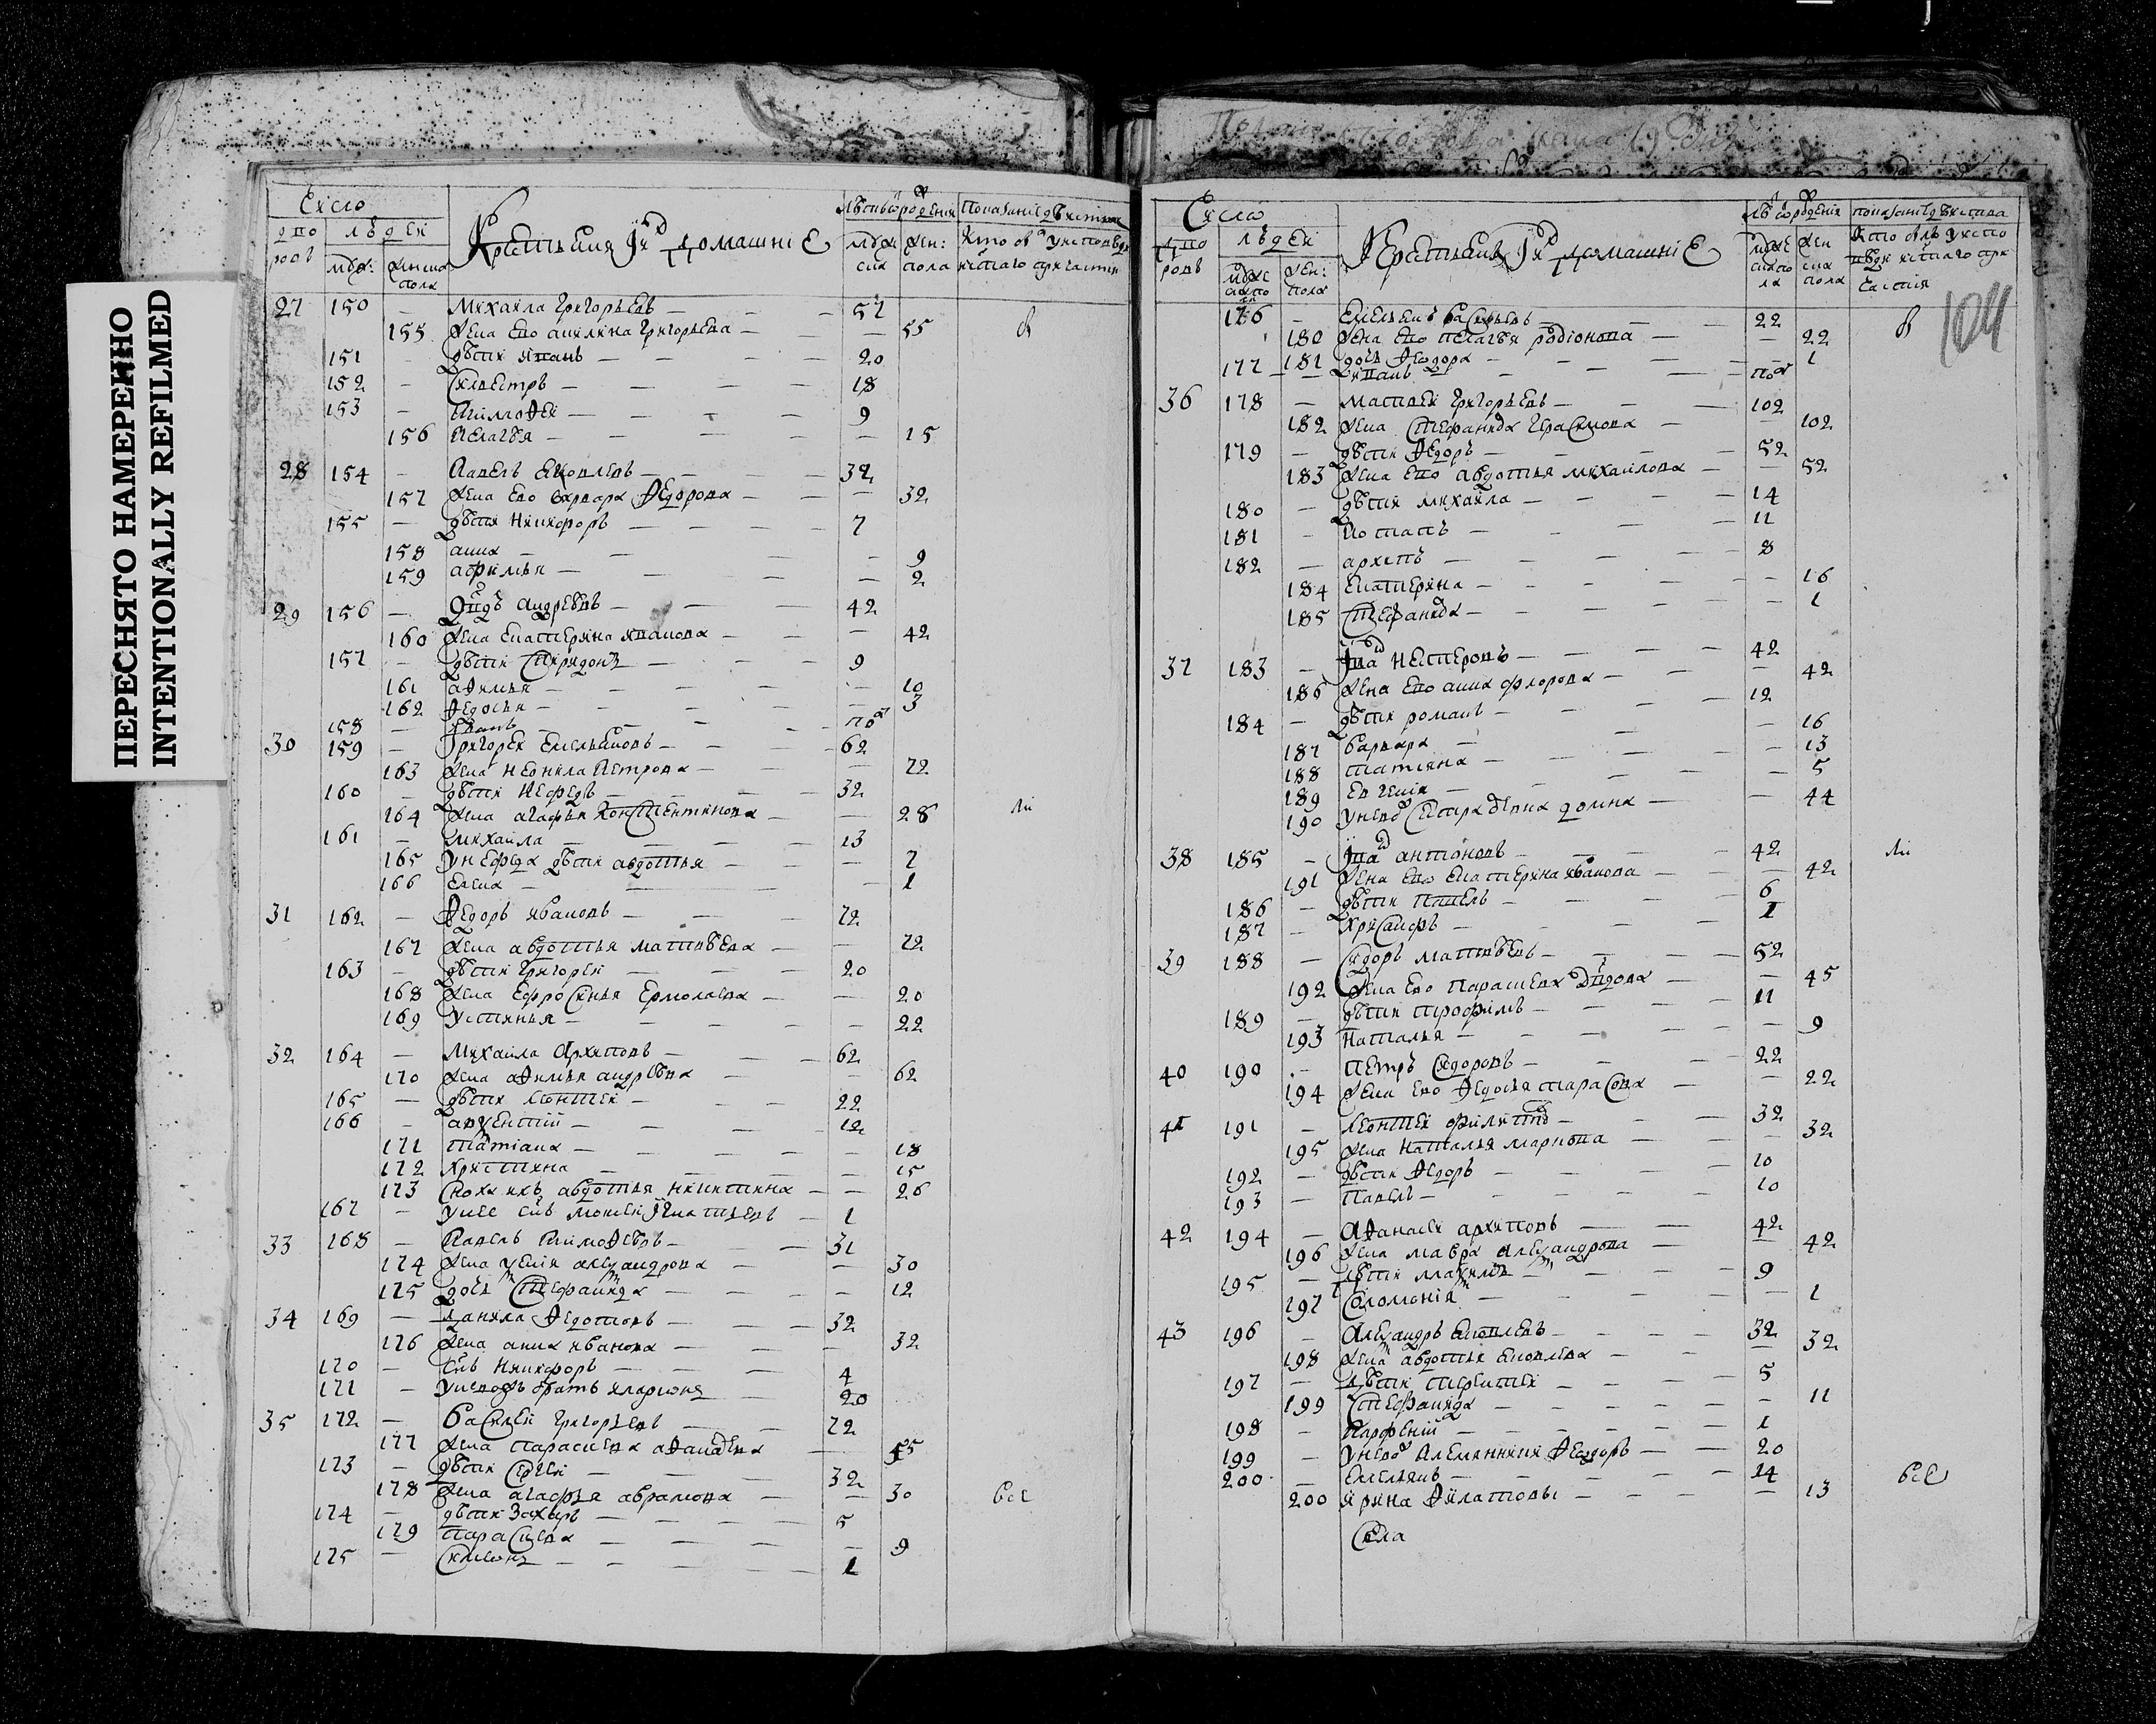 ПЕРЕСНЯТО НАМЕРЕННО
INTENTIONALLY REFILMED
Число
дворовъ
людей
муж:
женска пола
Крестьяня и ихъ домашние
лѣта от рождения
муж ска
жен: пола
27 150 – Михаила Григорьевъ – 57
155 жена ево Акилина Григорьева – 55
151 – дѣти Иванъ – 20
152 – Силвестръ – 18
153 – Тимофеи – 9
156 Пелагѣя – 15
28 154 – Павелъ Яковлевъ – 32
157 жена ево Варвара Федорова – 32
155 – дѣти Никифоръ – 7
158 анна – 9
159 афимья – 2
29 156 – Андреевъ – 42
160 жена Екатерина Иванова – 42
157 – дѣти Спиридонъ – 9
161 афимья – 10
162 Федосья – 3
158 – Иванъ – по
30 159 – Григореи Емельяновъ – 62
163 жена Неонила Петрова – 72
160 – дѣти Нефедъ – 32
164 жена агафья Констентинова – 28
161 – Михаила – 13
165 у Нефеда дѣти авдотья – 7
166 Елена – 1
31 162 – Федоръ Ивановъ – 72
167 жена авдотья матвѣева – 72
163 – дѣти Григореи – 20
168 жена Ефросинья Ермолаева – 20
169 Устинья – 22
32 164 – Михаила Архиповъ – 62
170 жена афимья андрѣева – 62
165 – дѣти Леонтеи – 22
166 – авксентий – 12
171 Татиана – 18
172 Християна – 15
173 сноха ихъ авдотья Никитина – 26
167 – у нее снъ Моисеи Игнатьевъ – 1
33 168 – Павелъ Тимофѣевъ – 31
174 жена ксения александрова – 30
175 дочь Стефанида – 12
34 169 – Данила Федотовъ – 32
176 жена анна Иванова – 32
170 – снъ Никифоръ – 4
171 – у него братъ Иларионъ 20
35 172 – Василеи Григорьевъ – 72
177 жена Парасковья афанасьева – 55
173 – дѣти Сергеи – 32
178 жена агафья аврамова – 30 все
174 – дѣти Захаръ – 5
179 Парасковья – 9
175 – Симеонъ – 1
Число
дворовъ
людей
мужеска пола
жен: пола
Крестьянъ и ихъ домашние
лѣта от рождения
мужеска пола
женска пола
104
176 – Емельянъ Васильевъ – 22
180 жена ево Пелагѣя родионова – 22
181 дочь Феодора – 1
177 – Иванъ – по
36 178 – матвеи Григорьевъ – 102
182 жена Стефанида Герасимова – 102
179 – дѣти Федоръ – 52
183 жена ево авдотья михаилова – 52
180 – дѣти михаила – 14
181 – Потапъ – 11
182 – архипъ – 8
184 Екатерина – 16
185 Стефанида – 1
37 183 – Нестеровъ – 42
186 жена ево анна фролова – 42
184 – дѣти романъ – 12
187 варвара – 16
188 татияна – 13
189 Евгения – 5
190 у нево сестра дѣвка домна – 44
38 185 – антоновъ – 42
191 жена ево Екатерина Иванова – 42
186 – дѣти Павелъ – 6
187 – Хрисанфъ – 1
39 188 – Сидоръ матвѣевъ – 52
192 жена ево Парасковья Двдова – 45
189 – дѣти трофимъ – 11
193 Наталья – 9
40 190 – Петръ Сидоровъ – 22
194 жена ево Федосья тарасова – 22
41 191 – Леонтеи филипов – 32
195 жена Наталья маркова – 32
192 – дѣти Федоръ – 10
193 – Павелъ – 10
42 194 – Афанасеи архиповъ – 42
196 жена мавра александрова – 42
195 – дѣти максимъ – 9
197 Соломония – 1
43 196 – Александръ Яковлевъ – 32
198 жена авдотья Яковлева – 32
197 – дѣти терентеи – 5
199 Стефанида – 11
198 – Парфений – 1
199 – у нево племянники Феодоръ – 20
200 – Емельянъ – 14
200 Ирина Филатовы – 13 все
Села